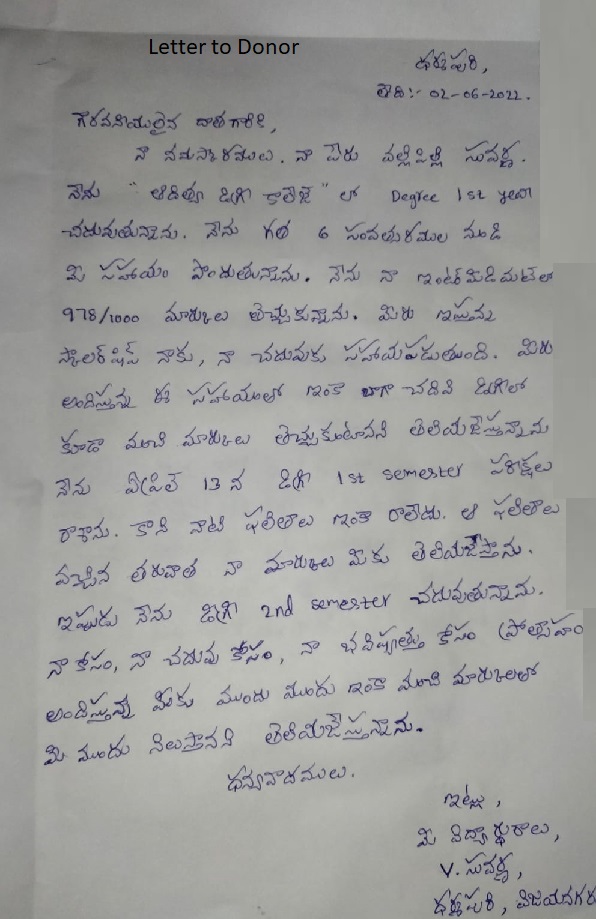 Letter to Donor
ధర్మపురి,
తేది:- 02-06-2022.
గౌరవనీయులైన దాతగారికి,
నా నమస్కారములు. నా పేరు వల్లిపిల్లి సువర్ణ.
నేను "ఆదిత్యా డిగ్రీ కాలేజీ" లో Degree 1st year
చదువుతున్నాను. నేను గత 6 సంవత్సరముల నుండి
మీ సహాయం పొందుతున్నాను. నేను నా ఇంటర్మీడియట్‌లో
978/1000 మార్కులు తెచ్చుకున్నాను. మీరు ఇస్తున్న
స్కాలర్‌షిప్ నాకు, నా చదువుకు సహాయపడుతుంది. మీరు
అందిస్తున్న ఈ సహాయంతో ఇంకా బాగా చదివి డిగ్రీలో
కూడా మంచి మార్కులు తెచ్చుకుంటానని తెలియజేస్తున్నాను
నేను ఏప్రిల్ 13 న డిగ్రీ 1st semester పరీక్షలు
రాశాను. కాని వాటి ఫలితాలు ఇంకా రాలేదు. ఆ ఫలితాలు
వచ్చిన తరువాత నా మార్కులు మీకు తెలియజేస్తాను.
ఇప్పుడు నేను డిగ్రీ 2nd semester చదువుతున్నాను.
నా కోసం, నా చదువు కోసం, నా భవిష్యత్తు కోసం ప్రోత్సాహం
అందిస్తున్న మీకు ముందు ముందు ఇంకా మంచి మార్కులతో
మీ ముందు నిలుస్తానని తెలియజేస్తున్నాను.
ధన్యవాదములు.
ఇట్లు,
మీ విద్యార్థురాలు,
V. సువర్ణ,
ధర్మపురి, విజయనగరం